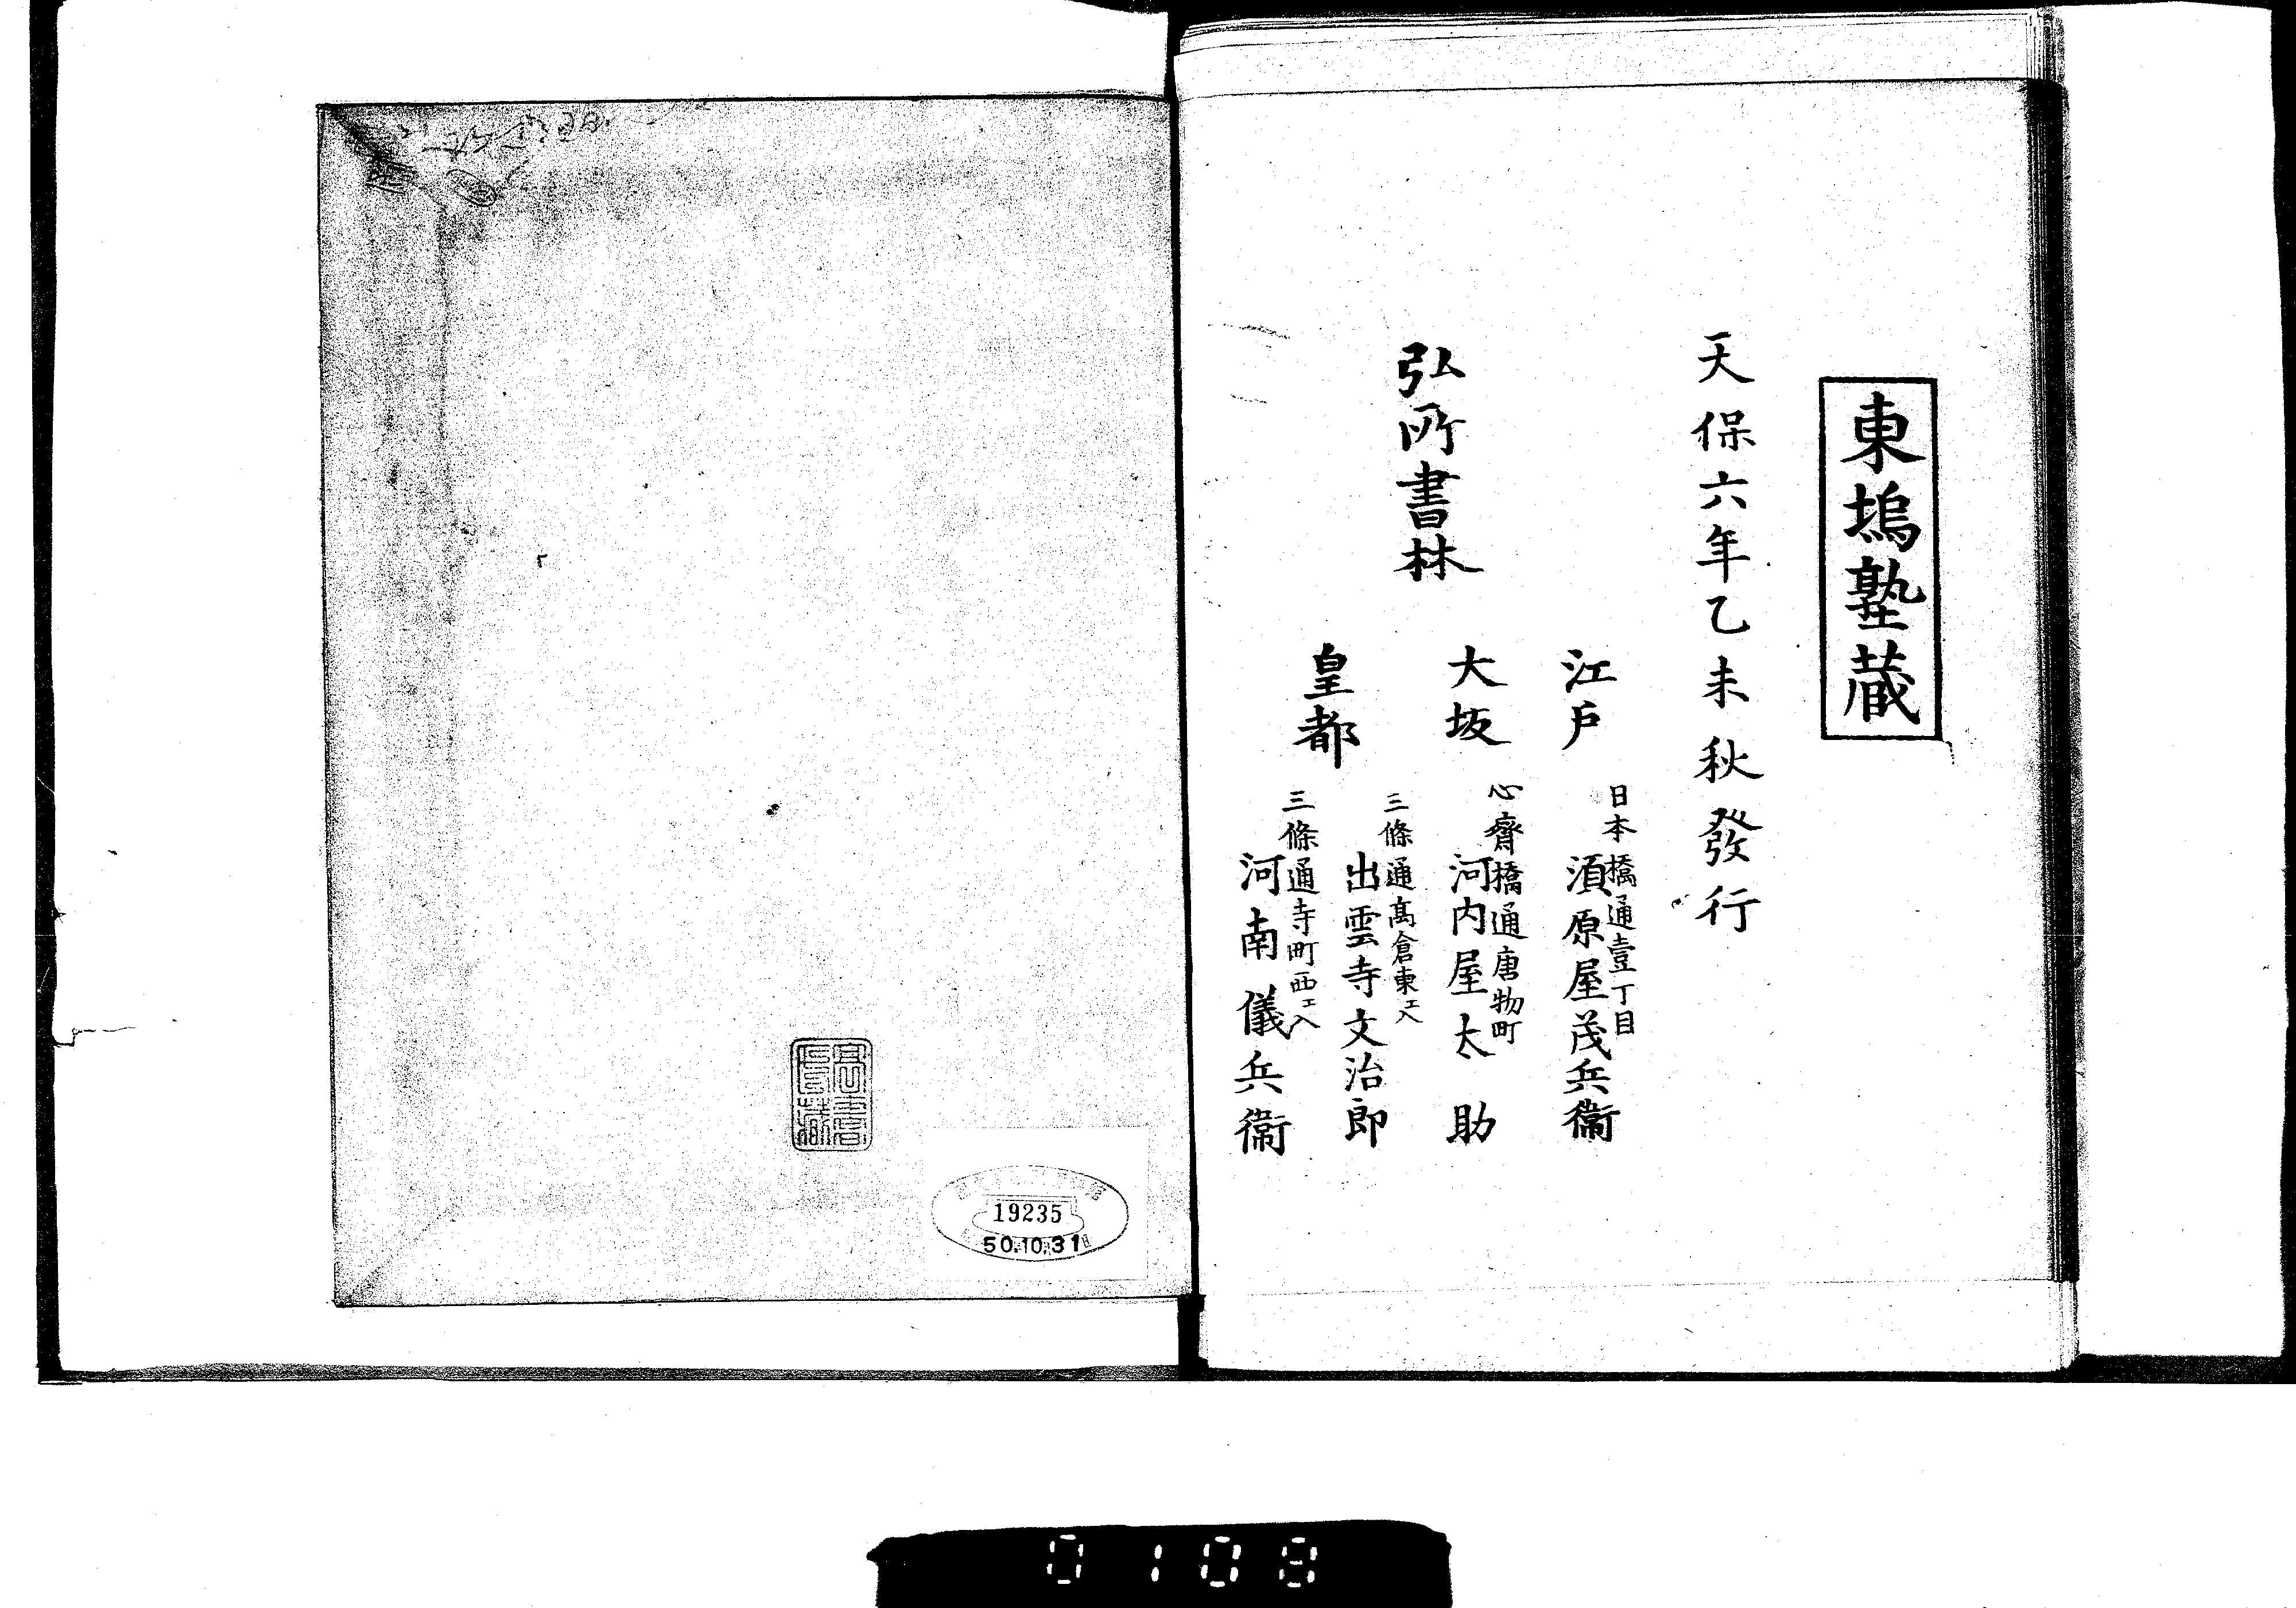 東塢塾蔵
天保六年乙未秋發行
弘所書林
江戸
日本橋通壹丁目
須原屋茂兵衞
大坂
心齋橋通唐物町
河内屋太助
皇都
三條通髙倉東エ入
出雲寺文治郎
三條通寺町西エ入
河南儀兵衞
19235
50.10.31
0108